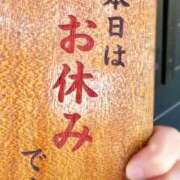 本日は
お休み
で